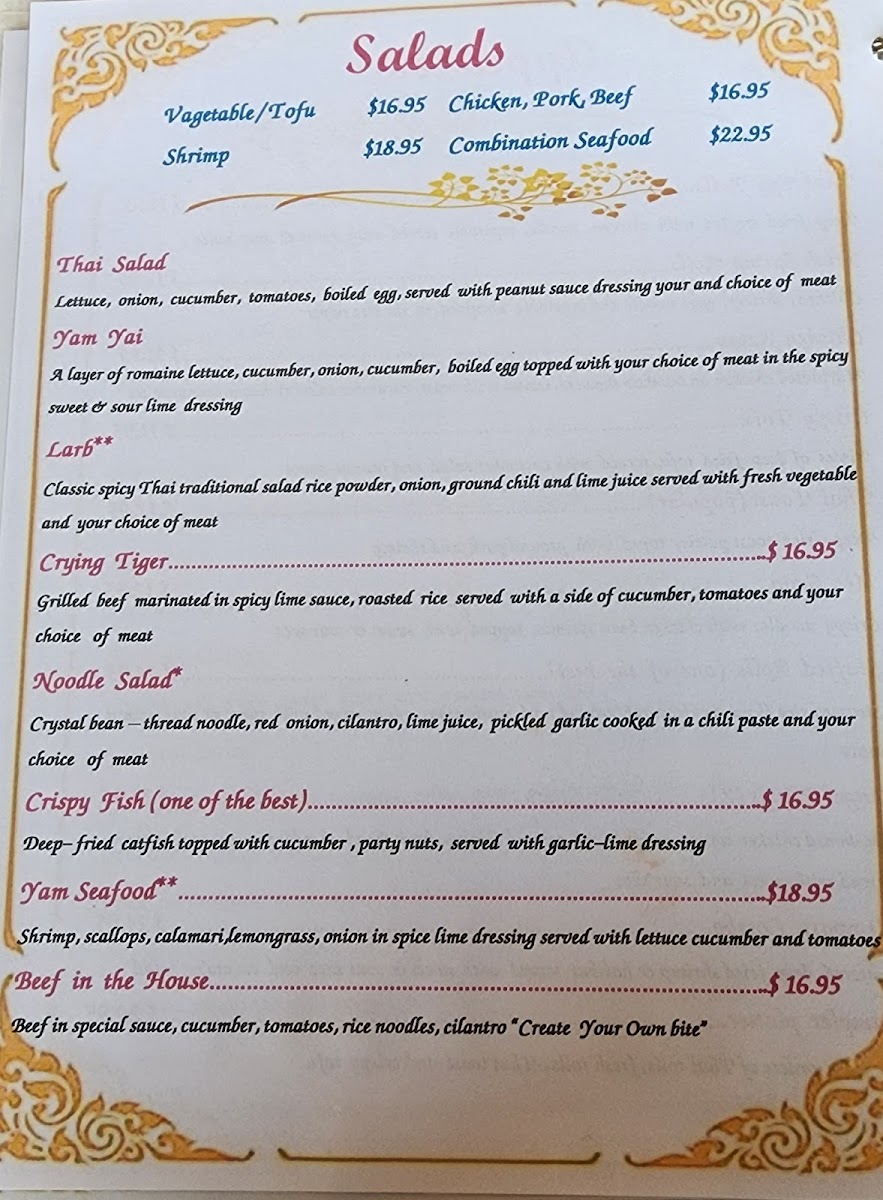 Salads
Vagetable/Tofu $16.95 Chicken, Pork, Beef $16.95
Shrimp $18.95 Combination Seafood $22.95
Thai Salad
Lettuce, onion, cucumber, tomatoes, boiled egg, served with peanut sauce dressing your and choice of meat
Yam Yai
A layer of romaine lettuce, cucumber, onion, cucumber, boiled egg topped with your choice of meat in the spicy
sweet & sour lime dressing
Larb**
Classic spicy Thai traditional salad rice powder, onion, ground chili and lime juice served with fresh vegetable
and your choice of meat
Crying Tiger....................$ 16.95
Grilled beef marinated in spicy lime sauce, roasted rice served with a side of cucumber, tomatoes and your
choice of meat
Noodle Salad*
Crystal bean – thread noodle, red onion, cilantro, lime juice, pickled garlic cooked in a chili paste and your
choice of meat
Crispy Fish (one of the best)....................$ 16.95
Deep–fried catfish topped with cucumber , party nuts, served with garlic–lime dressing
Yam Seafood**....................$18.95
Shrimp, scallops, calamari,lemongrass, onion in spice lime dressing served with lettuce cucumber and tomatoes
Beef in the House....................$ 16.95
Beef in special sauce, cucumber, tomatoes, rice noodles, cilantro "Create Your Own bite"